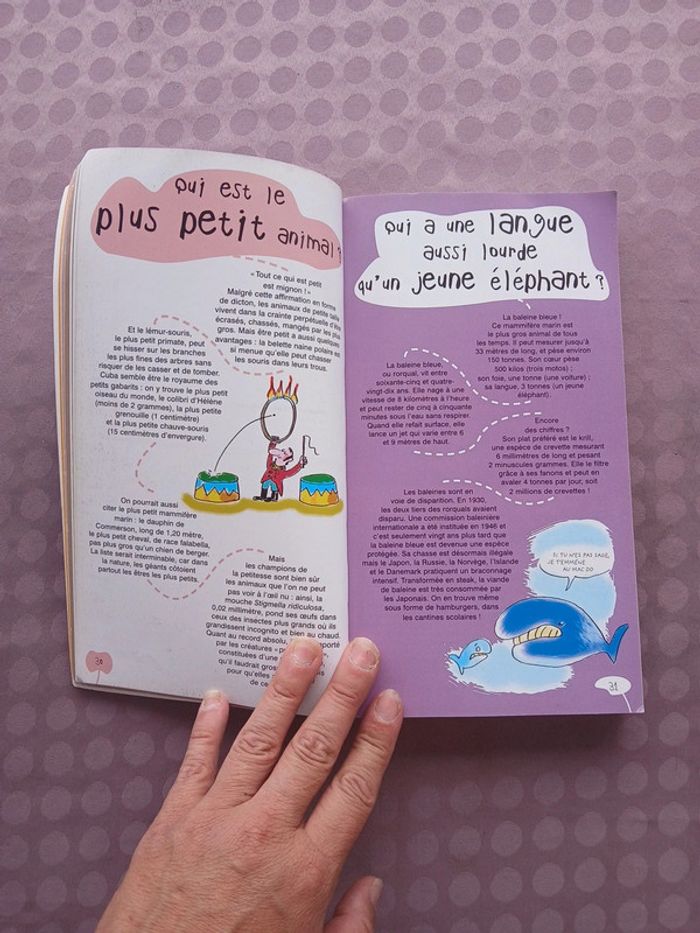 Qui est le
plus petit animal ?
« Tout ce qui est petit
est mignon ! »
Malgré cette affirmation en forme
de dicton, les animaux de petite taille
vivent dans la crainte perpétuelle d'être
écrasés, chassés, mangés par les plus
gros. Mais être petit a aussi quelques
avantages : la belette naine polaire est
si menue qu'elle peut chasser
les souris dans leurs trous.
Et le lémur-souris,
le plus petit primate, peut
se hisser sur les branches
les plus fines des arbres sans
risquer de les casser et de tomber.
Cuba semble être le royaume des
petits gabarits : on y trouve le plus petit
oiseau du monde, le colibri d'Hélène
(moins de 2 grammes), la plus petite
grenouille (1 centimètre)
et la plus petite chauve-souris
(15 centimètres d'envergure).
On pourrait aussi
citer le plus petit mammifère
marin : le dauphin de
Commerson, long de 1,20 mètre,
le plus petit cheval, de race falabella,
pas plus gros qu'un chien de berger.
La liste serait interminable, car dans
la nature, les géants côtoient
partout les êtres les plus petits.
Mais
les champions de
la petitesse sont bien sûr
les animaux que l'on ne peut
pas voir à l'œil nu : ainsi, la
mouche Stigmella ridiculosa,
0,02 millimètre, pond ses œufs dans
ceux des insectes plus grands où ils
grandissent incognito et bien au chaud.
Quant au record absolu,
par les créatures
constituées d'une
qu'il faudrait
pour qu'elles
de
30
Qui a une langue
aussi lourde
qu'un jeune éléphant ?
La baleine bleue !
Ce mammifère marin est
le plus gros animal de tous
les temps. Il peut mesurer jusqu'à
33 mètres de long, et pèse environ
150 tonnes. Son cœur pèse
500 kilos (trois motos) ;
son foie, une tonne (une voiture) ;
sa langue, 3 tonnes (un jeune
éléphant).
La baleine bleue,
ou rorqual, vit entre
soixante-cinq et quatre-
vingt-dix ans. Elle nage à une
vitesse de 8 kilomètres à l'heure
et peut rester de cinq à cinquante
minutes sous l'eau sans respirer.
Quand elle refait surface, elle
lance un jet qui varie entre 6
et 9 mètres de haut.
Encore
des chiffres ?
Son plat préféré est le krill,
une espèce de crevette mesurant
6 millimètres de long et pesant
2 minuscules grammes. Elle le filtre
grâce à ses fanons et peut en
avaler 4 tonnes par jour, soit
2 millions de crevettes !
Les baleines sont en
voie de disparition. En 1930,
les deux tiers des rorquals avaient
disparu. Une commission baleinière
internationale a été instituée en 1946 et
c'est seulement vingt ans plus tard que
la baleine bleue est devenue une espèce
protégée. Sa chasse est désormais illégale
mais le Japon, la Russie, la Norvège, l'Islande
et le Danemark pratiquent un braconnage
intensif. Transformée en steak, la viande
de baleine est très consommée par
les Japonais. On en trouve même
sous forme de hamburgers, dans
les cantines scolaires !
SI TU N'ES PAS SAGE,
JE T'EMMÈNE
AU MAC DO
31